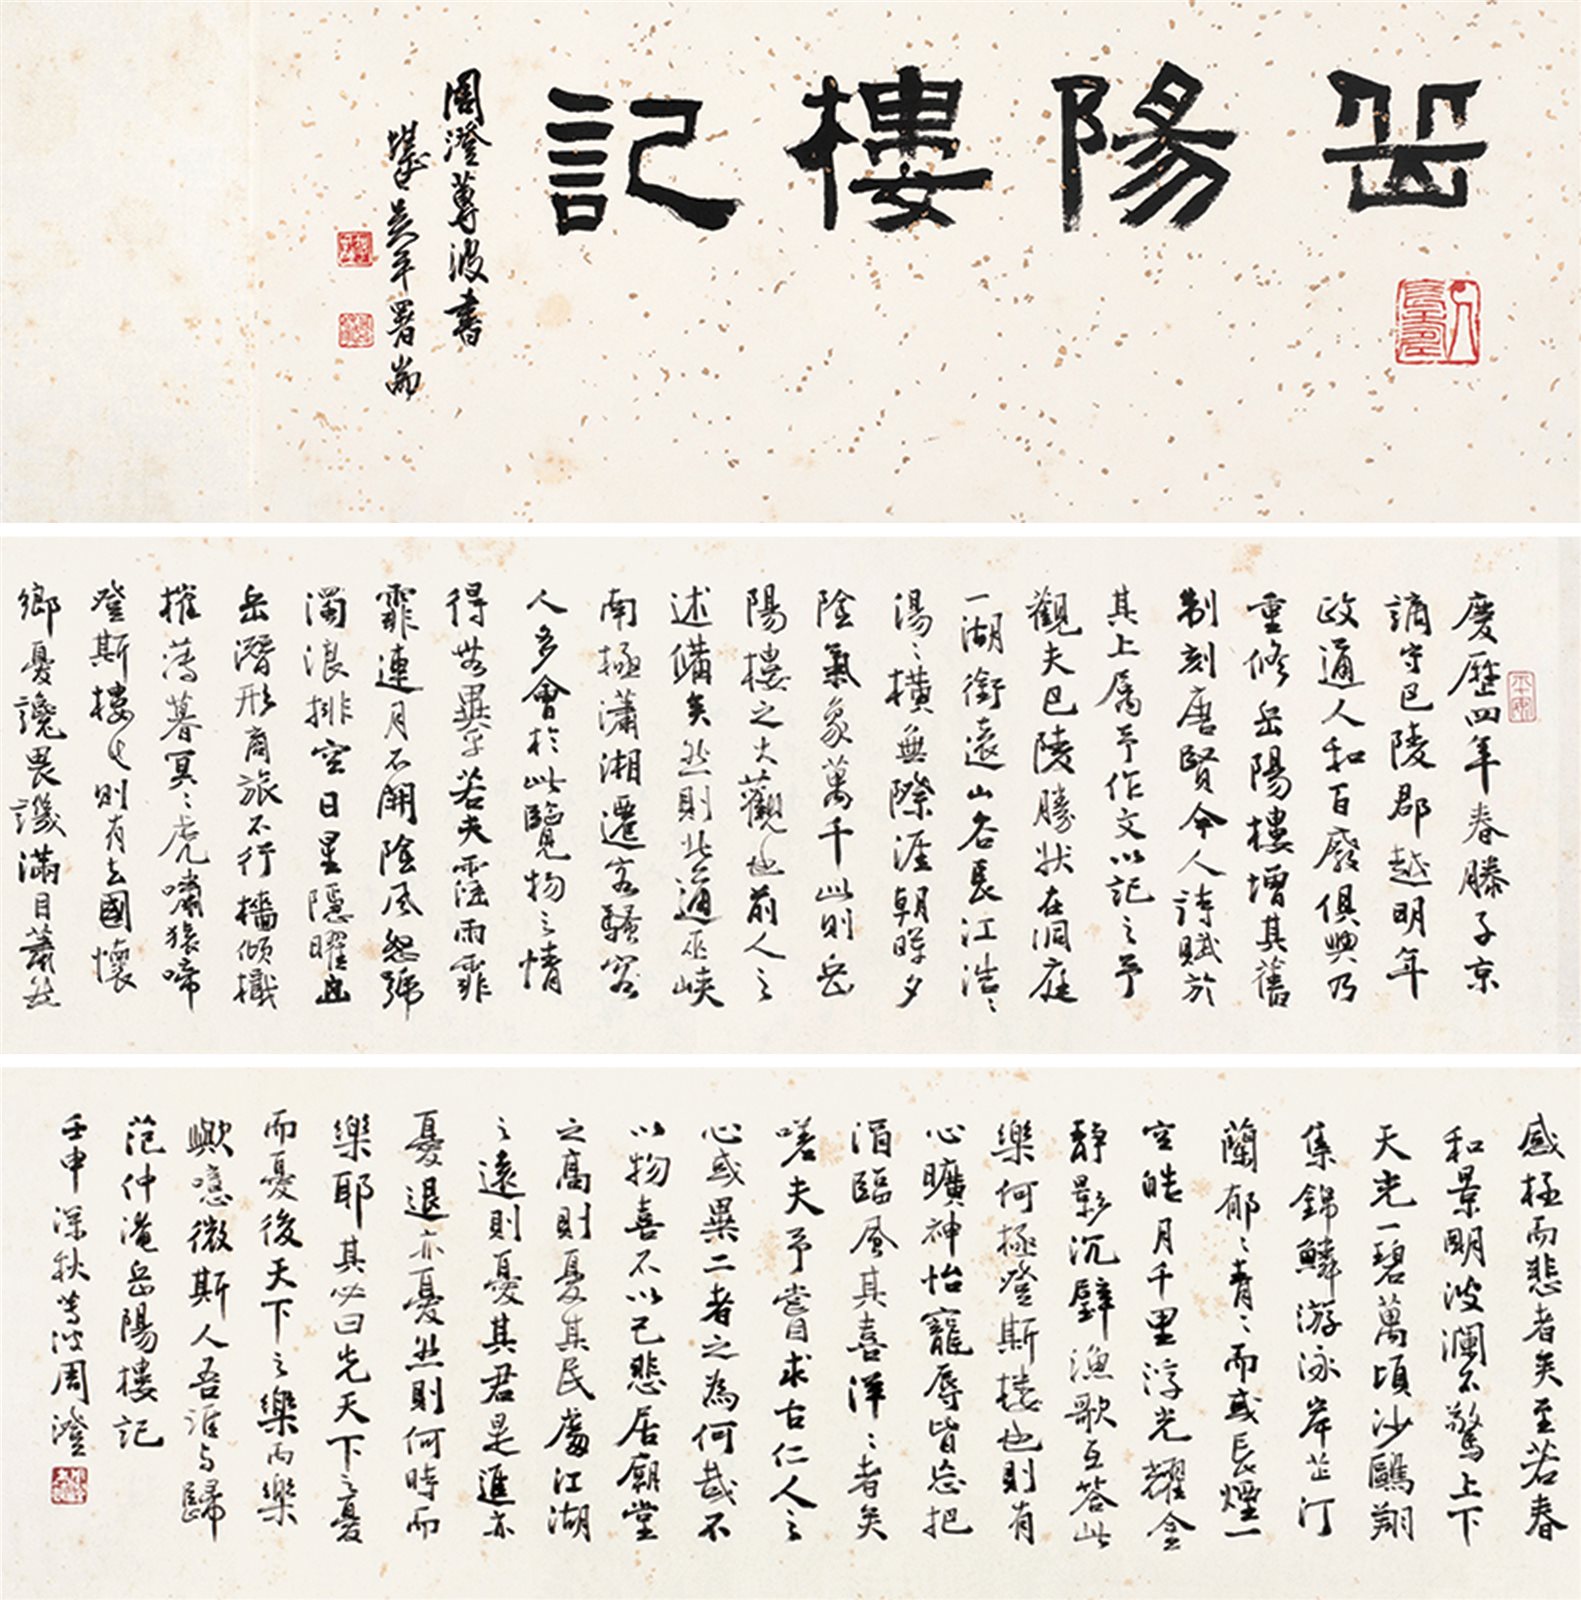 岳陽樓記
周澄蓴波書
署耑
慶歷四年春滕子京
謫守巴陵郡越明年
政通人和百廢俱興乃
重修岳陽樓增其舊
制刻唐賢今人詩賦於
其上属予作文以記之予
觀夫巴陵勝狀在洞庭
一湖銜遠山吞長江浩〻
湯〻橫無際涯朝暉夕
陰氣象萬千此則岳
陽樓之大觀也前人之
述備矣然則北通巫峽
南極瀟湘遷客騷客
人多會於此覽物之情
得無異乎若夫霪雨霏
霏連月不開陰風怒號
濁浪排空日星隱曜山
岳潛形商旅不行檣傾檝
摧薄暮冥〻虎嘯猿啼
登斯樓也則有去國懷
鄉憂讒畏譏滿目蕭然
感極而悲者矣至若春
和景明波瀾不驚上下
天光一碧萬頃沙鷗翔
集錦鱗游泳岸芷汀
蘭郁〻青〻而或長煙一
空皓月千里浮光耀金
靜影沉璧漁歌互答此
樂何極登斯樓也則有
心曠神怡寵辱皆忘把
酒臨風其喜洋〻者矣
嗟夫予嘗求古仁人之
心或異二者之為何哉不
以物喜不以己悲居廟堂
之高則憂其民處江湖
之遠則憂其君是進亦
憂退亦憂然則何時而
樂耶其必曰先天下之憂
而憂後天下之樂而樂
歟噫微斯人吾誰与歸
范仲淹岳陽樓記
壬申深秋蓴波周澄